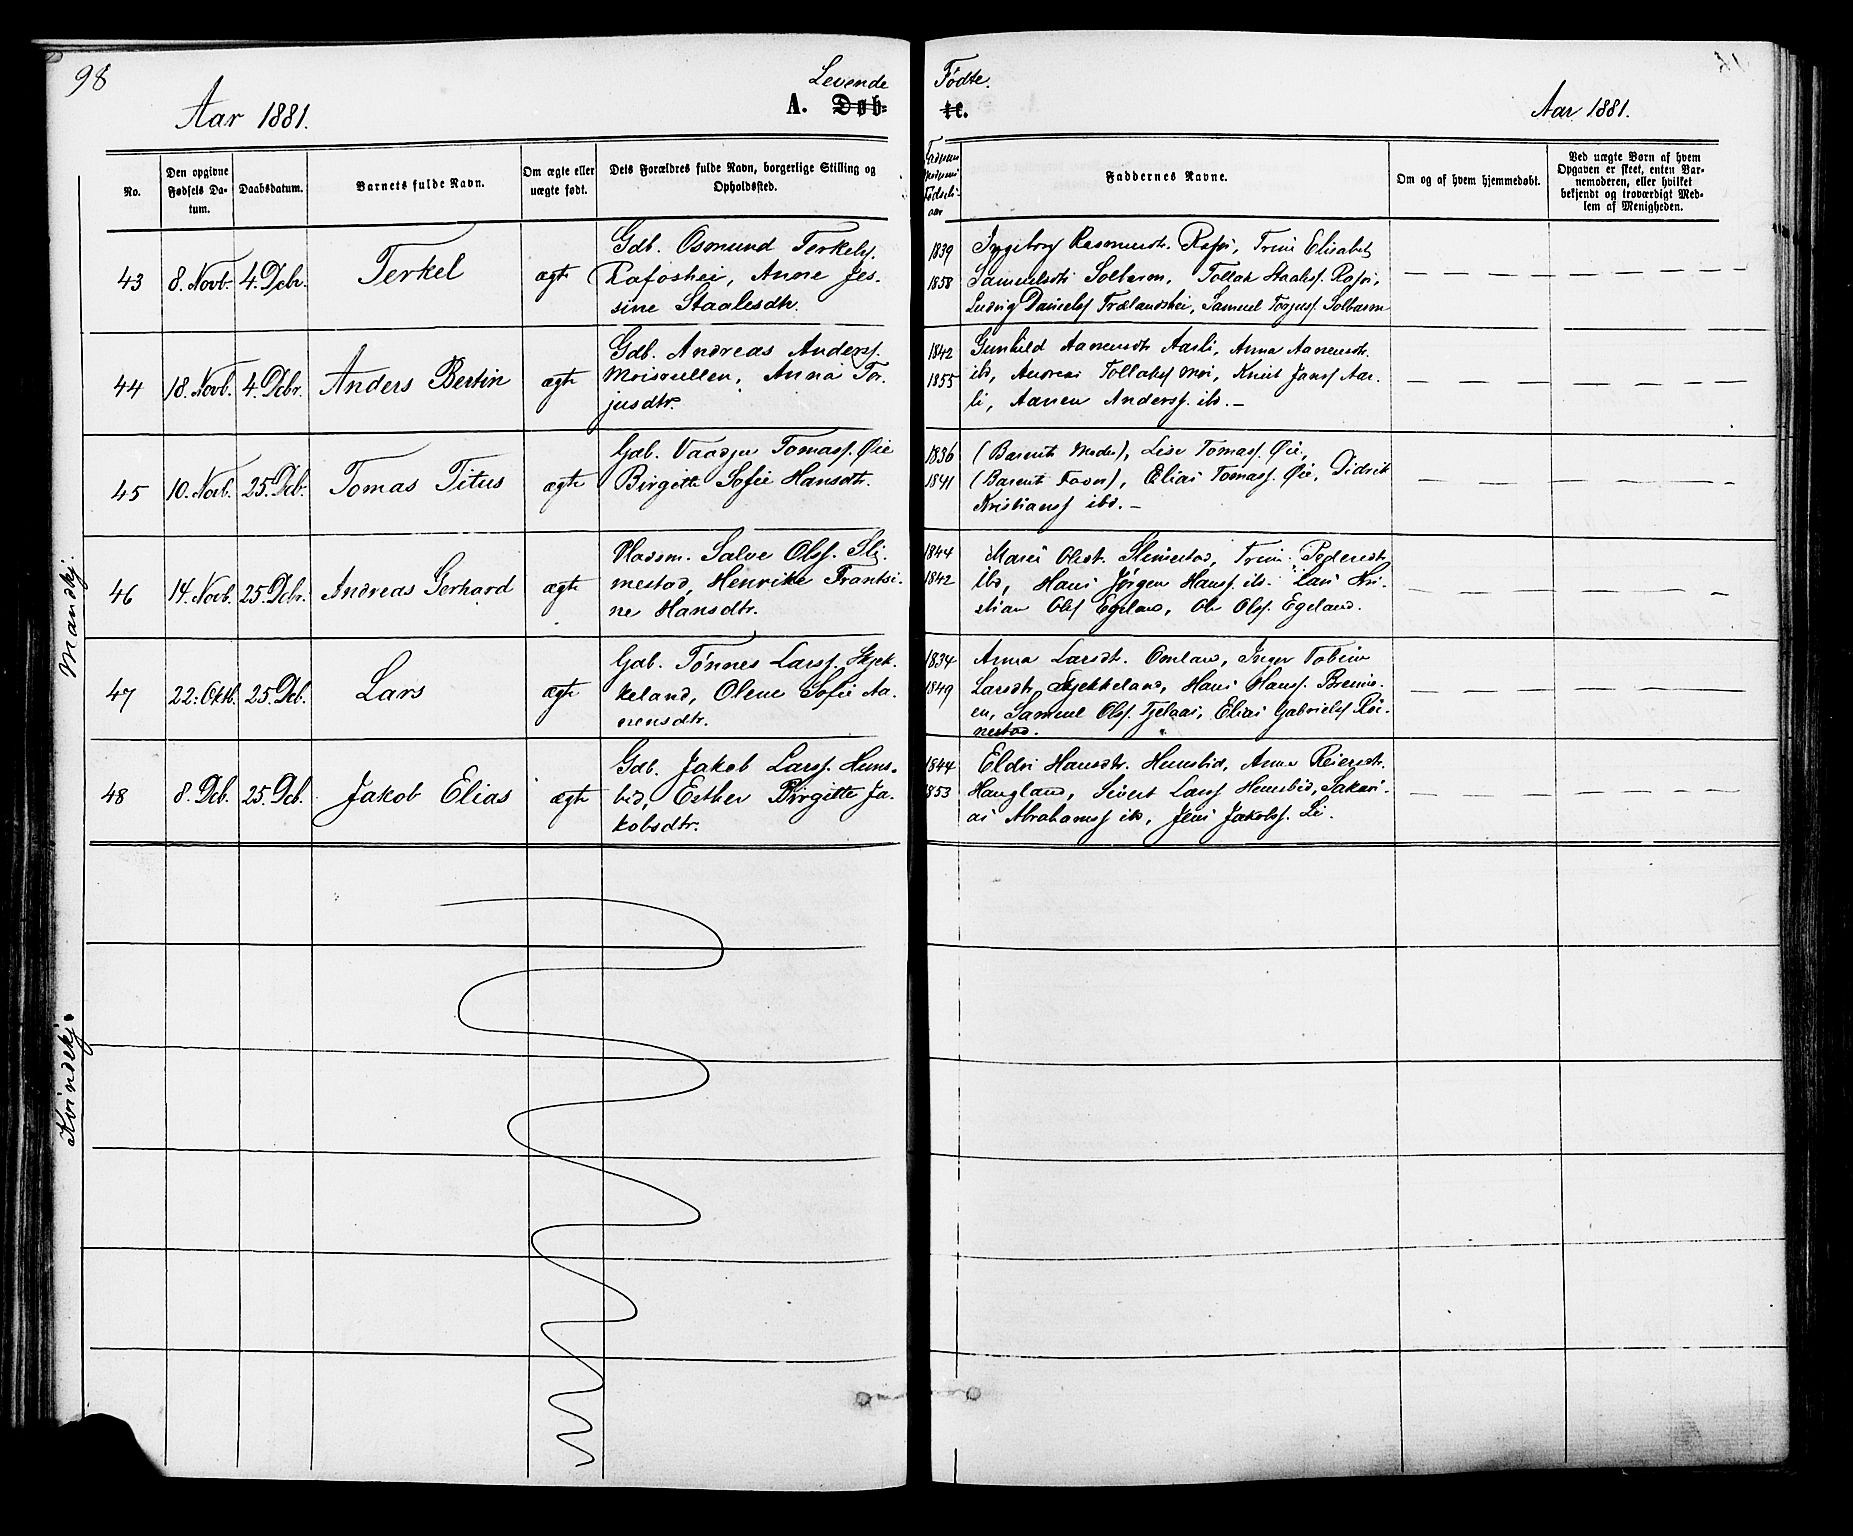 98
Levende Fødte.
Aar 1881. A. Døb-te. Aar 1881.
No.
Den opgivne Fødsels Da-tum.
Daabsdatum.
Barnets fulde Navn.
Om ægte eller uægte født.
Dets Forældres fulde Navn, borgerlige Stilling og Opholdssted.
Faddernes Navne.
Om og af hvem hjemmedøbt.
Ved uægte Børn af hvem
Opgaven er skeet, enten Bar-
nemoderen, eller hvilket
bekjendt og troværdigt Med-
lem af Menigheden.
Mandkj.
43 8. Novb. 4. Dcbr. Terkel ægte
Gdb. Osmund Terkels.
Rafoshei, Anne Jes-
sine Staalesdtr.
1839
1858
Ingeborg Rasmusdtr. Rafos, Trine Elisabet
Samuelsdtr Solbærm, Tollak Staaless. Rafos,
Ludvig Daniels Trælandshei, Samuel Torjuss. Solbærm
44 18. Novb. 4. Dcbr. Anders Bertin ægte
Gdb. Andreas Anderss.
Moisvullen, Anna Tor-
jusdtr.
1842
1855
Gunhild Aanensdtr Aasli, Anna Aanensdtr.
ibd, Andreas Tollaks Moi, Knut Janss Aas-
li, Aanen Anderss. ibd. —
45 10. Novb. 25. Dcb. Tomas Titus ægte
Gdb. Vaadju Tomass. Øie
Birgitte Sofie Hansdtr.
1836
1841
(Barnets Moder), Lise Tomass. Øie,
(Barnets Fader), Elias Tomass. Øie, Didrik
Kristianss ibd. —
46 14. Novb. 25. Dcbr. Andreas Gerhard ægte
Pladsm. Salve Olss. Sli-
mestad, Henrikke Frantsi-
ne Hansdtr.
1844
1842
Maren Olsdt. Slimestad, Trine Pedersdtr
ibd, Hans Jørgen Hanss. ibd. Lars Kri-
stian Olss Egeland, Ole Olss. Egeland.
47 22. Oktb. 25. Dcb. Lars ægte
Gdb. Tønnes Larss. Skjek-
keland, Olene Sofie Aa-
nensdtr.
1834
1849
Anna Larsdtr. Omland, Inger Tobine
Larsdtr Skjekkeland, Hans Hanss. Bremo-
en, Samuel Olss. Tjelaas, Elias Gabrielss Røi-
nestad.
48 8. Dcb. 25. Dcb. Jakob Elias ægte
Gdb. Jakob Larss. Hums-
bid, Esther Birgitte Ja-
kobsdtr.
1844
1853
Eldri Hansdtr. Humsbid, Anna Reiersdtr.
Haugland, Sivert Larss Humsbid, Sakari-
as Abrahamss ibd, Jens Jakobss. Li.
Kvindekj.